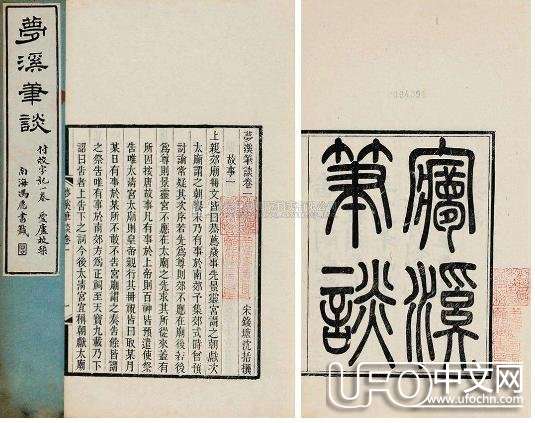 夢溪筆談
付校字記一卷 愛廬校槧
夢溪筆談卷一
宋錢塘沈括撰
故事一
上親郊廟冊文皆曰恭薦歲事先景靈宮謂之朝獻次
太廟謂之朝饗末乃有事於南郊予集郊式時曾預
討論常疑其次序若先為尊則郊不應在廟後若後
為尊則景靈宮不應在太廟之先求其所從來蓋有
所因按唐故事凡有事於上帝則百神皆預遣使祭
告唯太清宮太廟則皇帝親行其冊祝皆曰取某月
某日有事於某所不敢不告宮廟謂之奏告餘皆謂
之祭告唯有事於南郊方為正祠至天寶九載乃下
詔曰告者上告下之詞今後太清宮宜稱朝獻太廟
夢溪
筆談
UFO中文网
www.ufochn.com